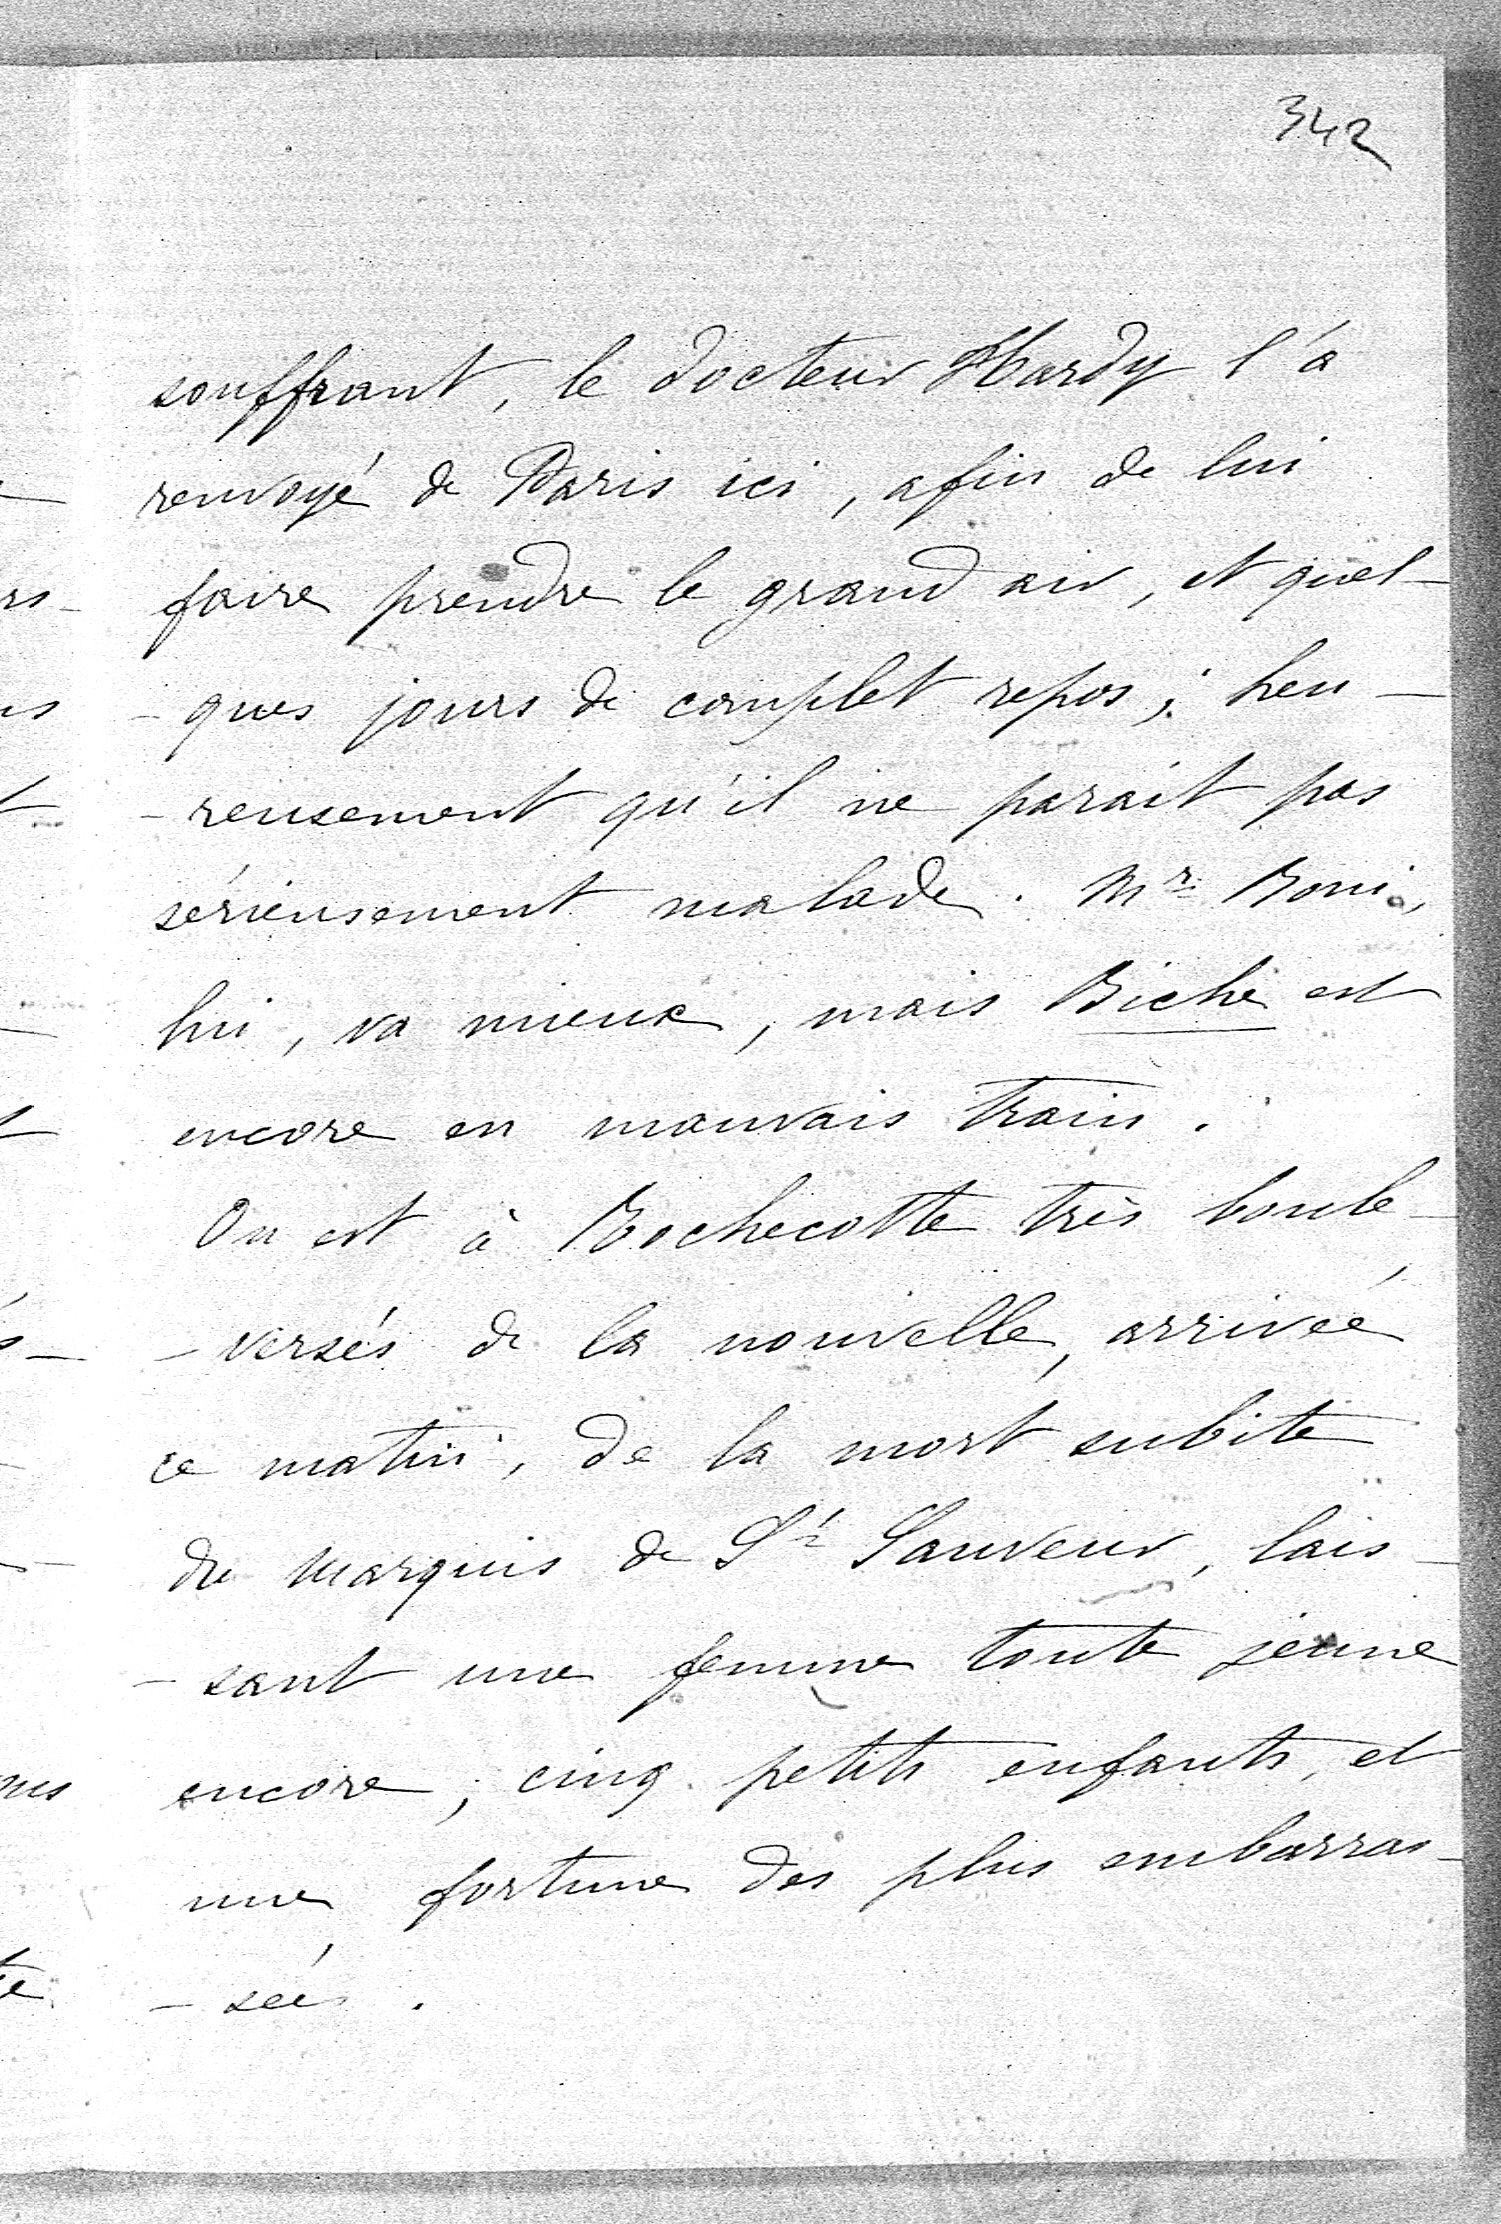 342
souffrant, le docteur Hardy l'a
renvoyé de Paris ici, afin de lui
faire prendre le grand air, et quel-
-ques jours de complet repos ; heu-
-reusement qu'il ne parait pas
sérieusement malade. Mr Boni,
lui, va mieux, mais Biche est
encore en mauvais train.
On est à Rochecotte très boule-
-versés de la nouvelle, arrivée
ce matin, de la mort subite
du Marquis de St Sauveur, lais-
-sant une femme toute jeune
encore, cinq petits enfants, et
une fortune des plus embarras-
-sées.